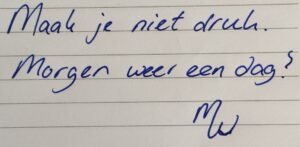 Maak je niet druk.
Morgen weer een dag!
MW